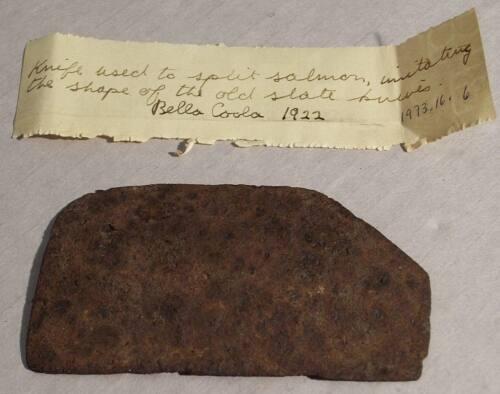 Knife used to split salmon, imitating
the shape of the old slate knives.
Bella Coola 1922
1973.16.6